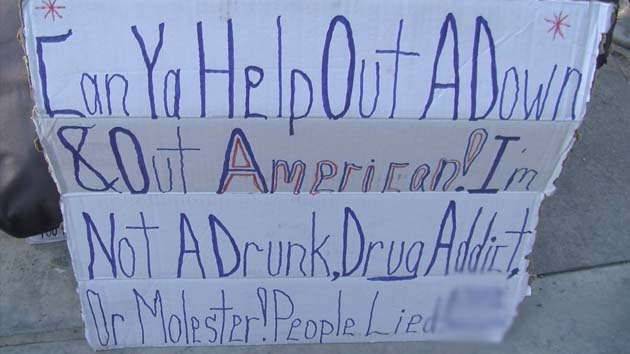 Can Ya Help Out A Down
& Out American! I'm
Not A Drunk, Drug Addict,
Or Molester! People Lied